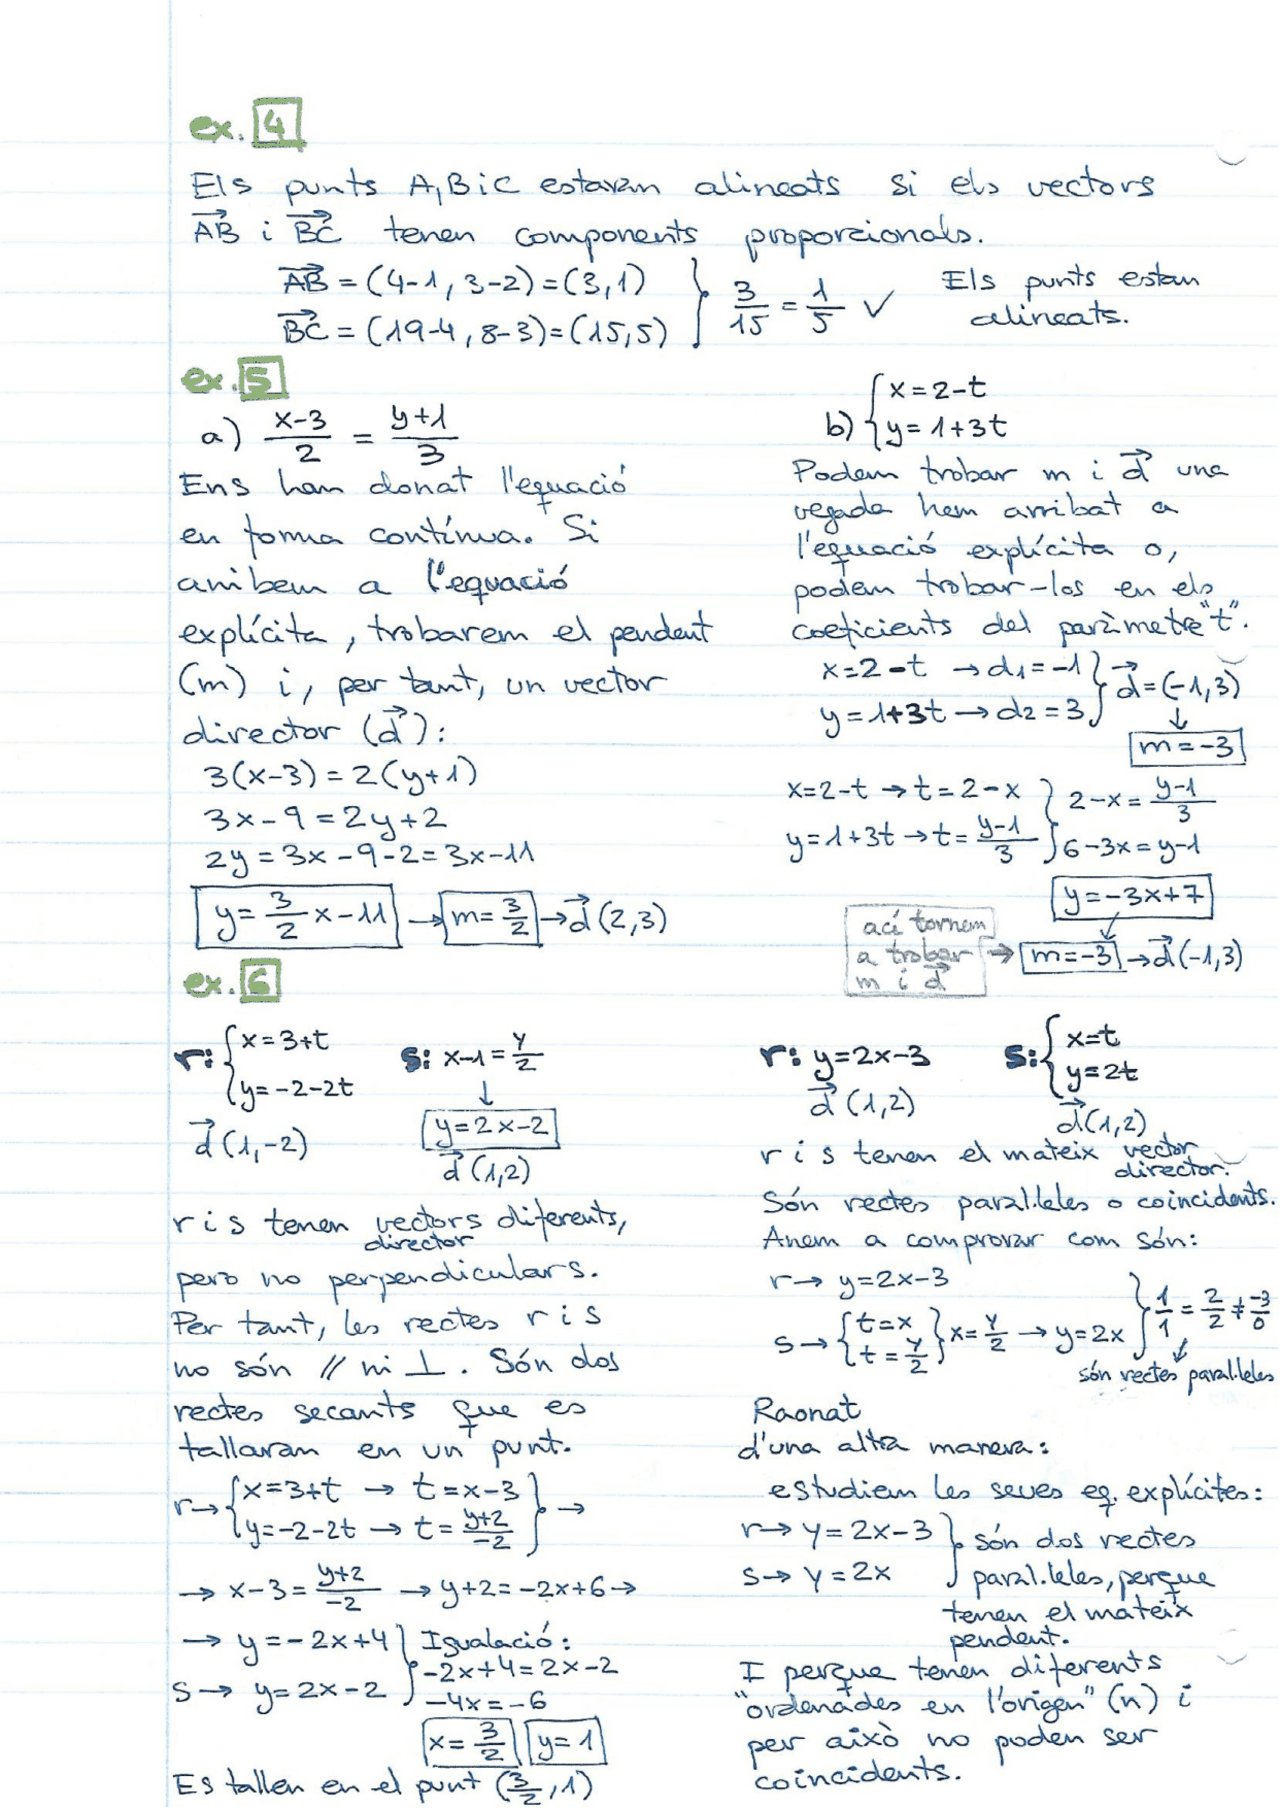 ex. 4
Els punts A, B i C estaran alineats si els vectors
AB i BC tenen components proporcionals.
AB = (4-1, 3-2) = (3,1)
BC = (19-4, 8-3) = (15,5)
3/15 = 1/5 ✓
Els punts estan
alineats.
ex. 5
a) (x-3)/2 = (y+1)/3
Ens han donat l'equació
en forma contínua. Si
arribem a l'equació
explícita, trobarem el pendent
(m) i, per tant, un vector
director (d):
3(x-3) = 2(y+1)
3x-9 = 2y+2
2y = 3x-9-2 = 3x-11
y = 3/2 x-11 → m = 3/2 → d (2,3)
b) { x = 2-t
y = 1+3t
Podem trobar m i d una
vegada hem arribat a
l'equació explícita o,
podem trobar-los en els
coeficients del paràmetre "t".
x = 2-t → d1 = -1
y = 1+3t → d2 = 3
} d = (-1,3)
↓
m = -3
x = 2-t → t = 2-x
y = 1+3t → t = (y-1)/3
} 2-x = (y-1)/3
6-3x = y-1
y = -3x+7
ací tornem
a trobar
m i d
→ m = -3 → d (-1,3)
ex. 6
r: { x = 3+t
y = -2-2t
d (1,-2)
s: x-1 = y/2
↓
y = 2x-2
d (1,2)
r i s tenen vectors diferents,
director
pero no perpendiculars.
Per tant, les rectes r i s
no són // ni ⊥. Són dos
rectes secants que es
tallaran en un punt.
r → { x = 3+t → t = x-3
y = -2-2t → t = (y+2)/-2 } →
→ x-3 = (y+2)/-2 → y+2 = -2x+6 →
→ y = -2x+4
s → y = 2x-2
} Igualació:
-2x+4 = 2x-2
-4x = -6
x = 3/2 y = 1
Es tallen en el punt (3/2, 1)
r: y = 2x-3
d (1,2)
s: { x = t
y = 2t
d (1,2)
r i s tenen el mateix vector
director.
Són rectes paral·leles o coincidents.
Anem a comprovar com són:
r → y = 2x-3
s → { t = x
t = y/2 } x = y/2 → y = 2x
} 1/1 = 2/2 ≠ -3/0
són rectes paral·leles
Raonat
d'una altra manera:
estudiem les seves eq. explícites:
r → y = 2x-3
s → y = 2x
} són dos rectes
paral·leles, perque
tenen el mateix
pendent.
I perque tenen diferents
"ordenades en l'origen" (n) i
per això no poden ser
coincidents.